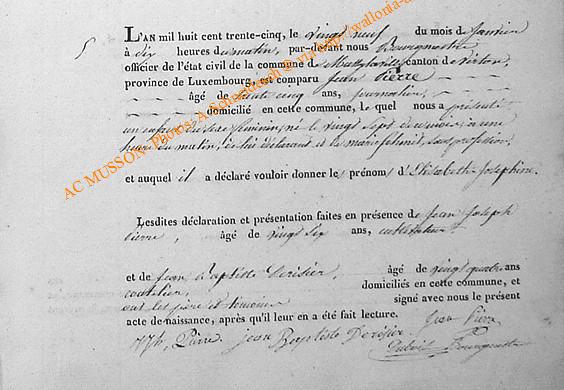 5
L'AN mil huit cent trente-cinq, le vingt neuf du mois de Janvier
à dix heures du matin, par-devant nous Bourgmestre
officier de l'état civil de la commune de canton de Virton,
province de Luxembourg, est comparu Jean Pierre
âgé de trente cinq ans, journalier,
domicilié en cette commune, le quel nous a présenté
un enfant du sexe féminin, né le vingt sept du mois, à une
heure du matin, de lui déclarant et de marie Schmit, sans profession,
et auquel il a déclaré vouloir donner le prénom d'Elisabeth Josephine.
Lesdites déclaration et présentation faites en présence de Jean Joseph
Pierre, âgé de vingt six ans,
et de Jean Baptiste Derisier, âgé de vingt quatre ans
domiciliés en cette commune, et
ont les père et témoins signé avec nous le présent
acte de naissance, après qu'il leur en a été fait lecture.
Pierre. Jean Baptiste Derisier Jean Pierre
Bourgmestre
AC MUSSON - Photos: A. Schmeltesch @ via http://wallonia-